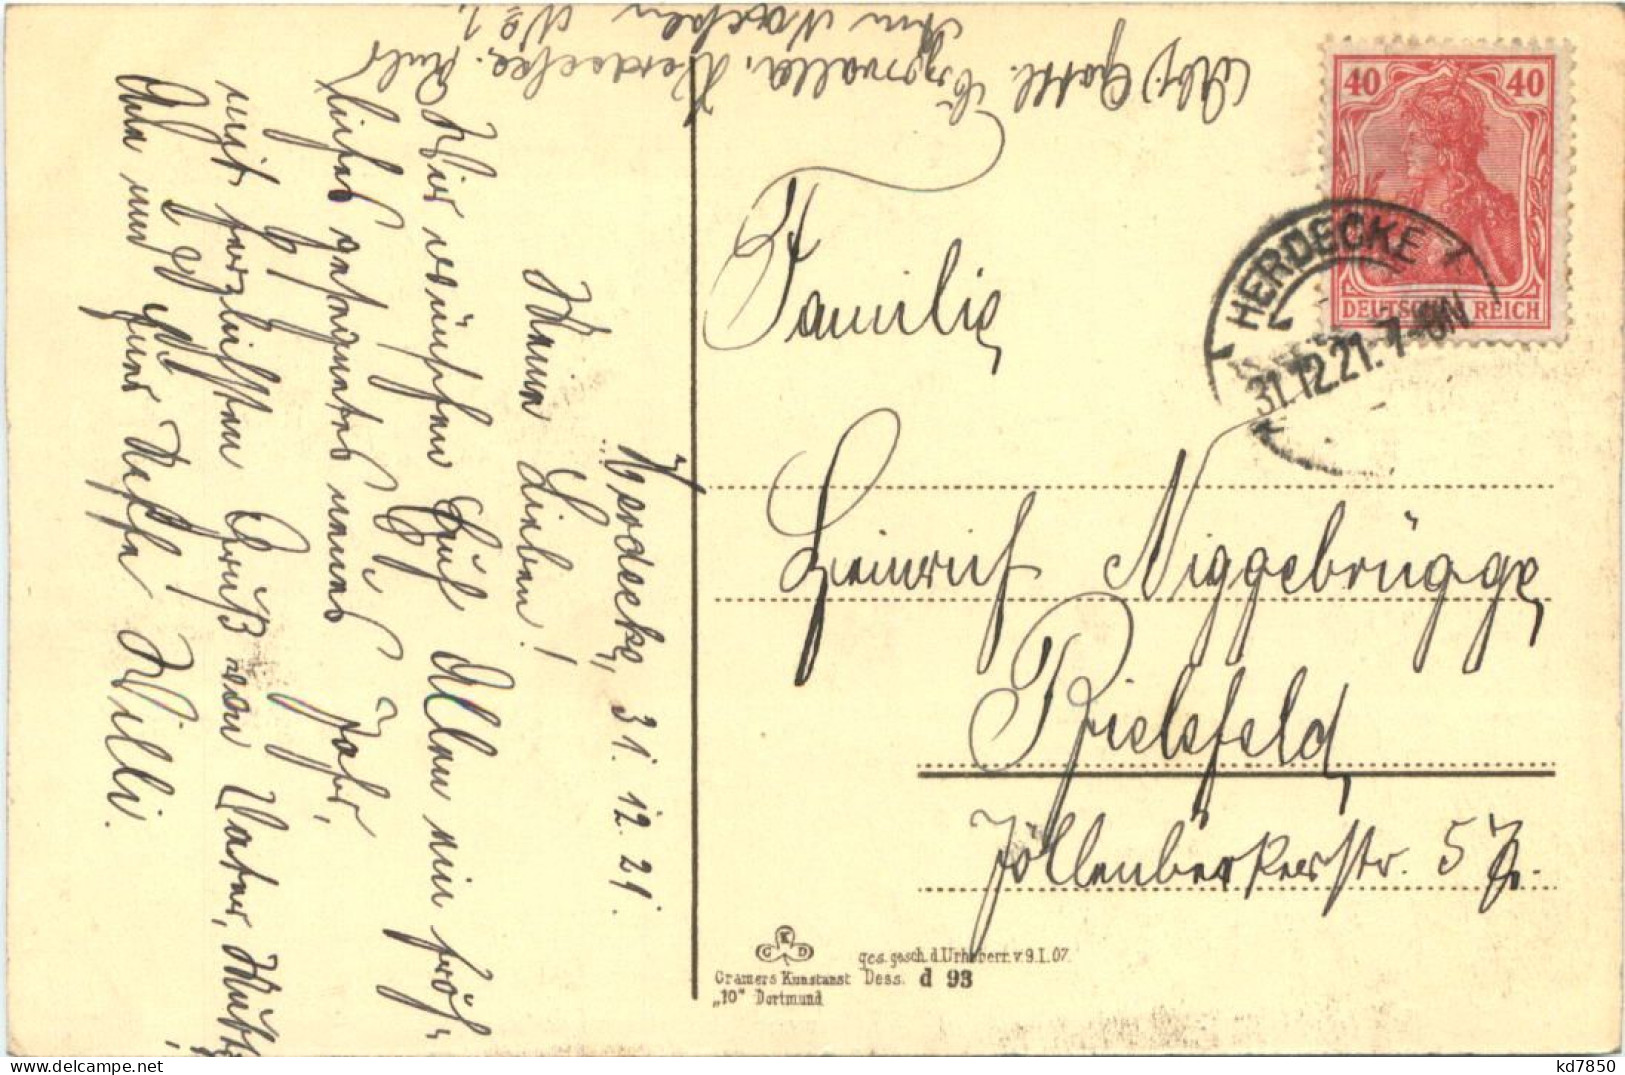 Herdecke, 31. 12. 21.
Meine Lieben!
Wir wünschen Euch Allen ein fröh-
liches gesegnetes neues Jahr,
mit herzlichsten Gruß von Vater, Mutter,
und Eurer Willi.
Abs.
Herdecke. Ruhr
Am Nacken No 1.
Familie
Heinrich Niggebrügge
Bielefeld
Jöllenbeckerstr. 57
40 40
DEUTSCHES REICH
HERDECKE
31.12.21. 7-8N
C K D
Cramers Kunstanst
„10“ Dortmund
ges. gesch. d. Urheberr. v. 9. I. 07.
Dess. d 93
kd7850